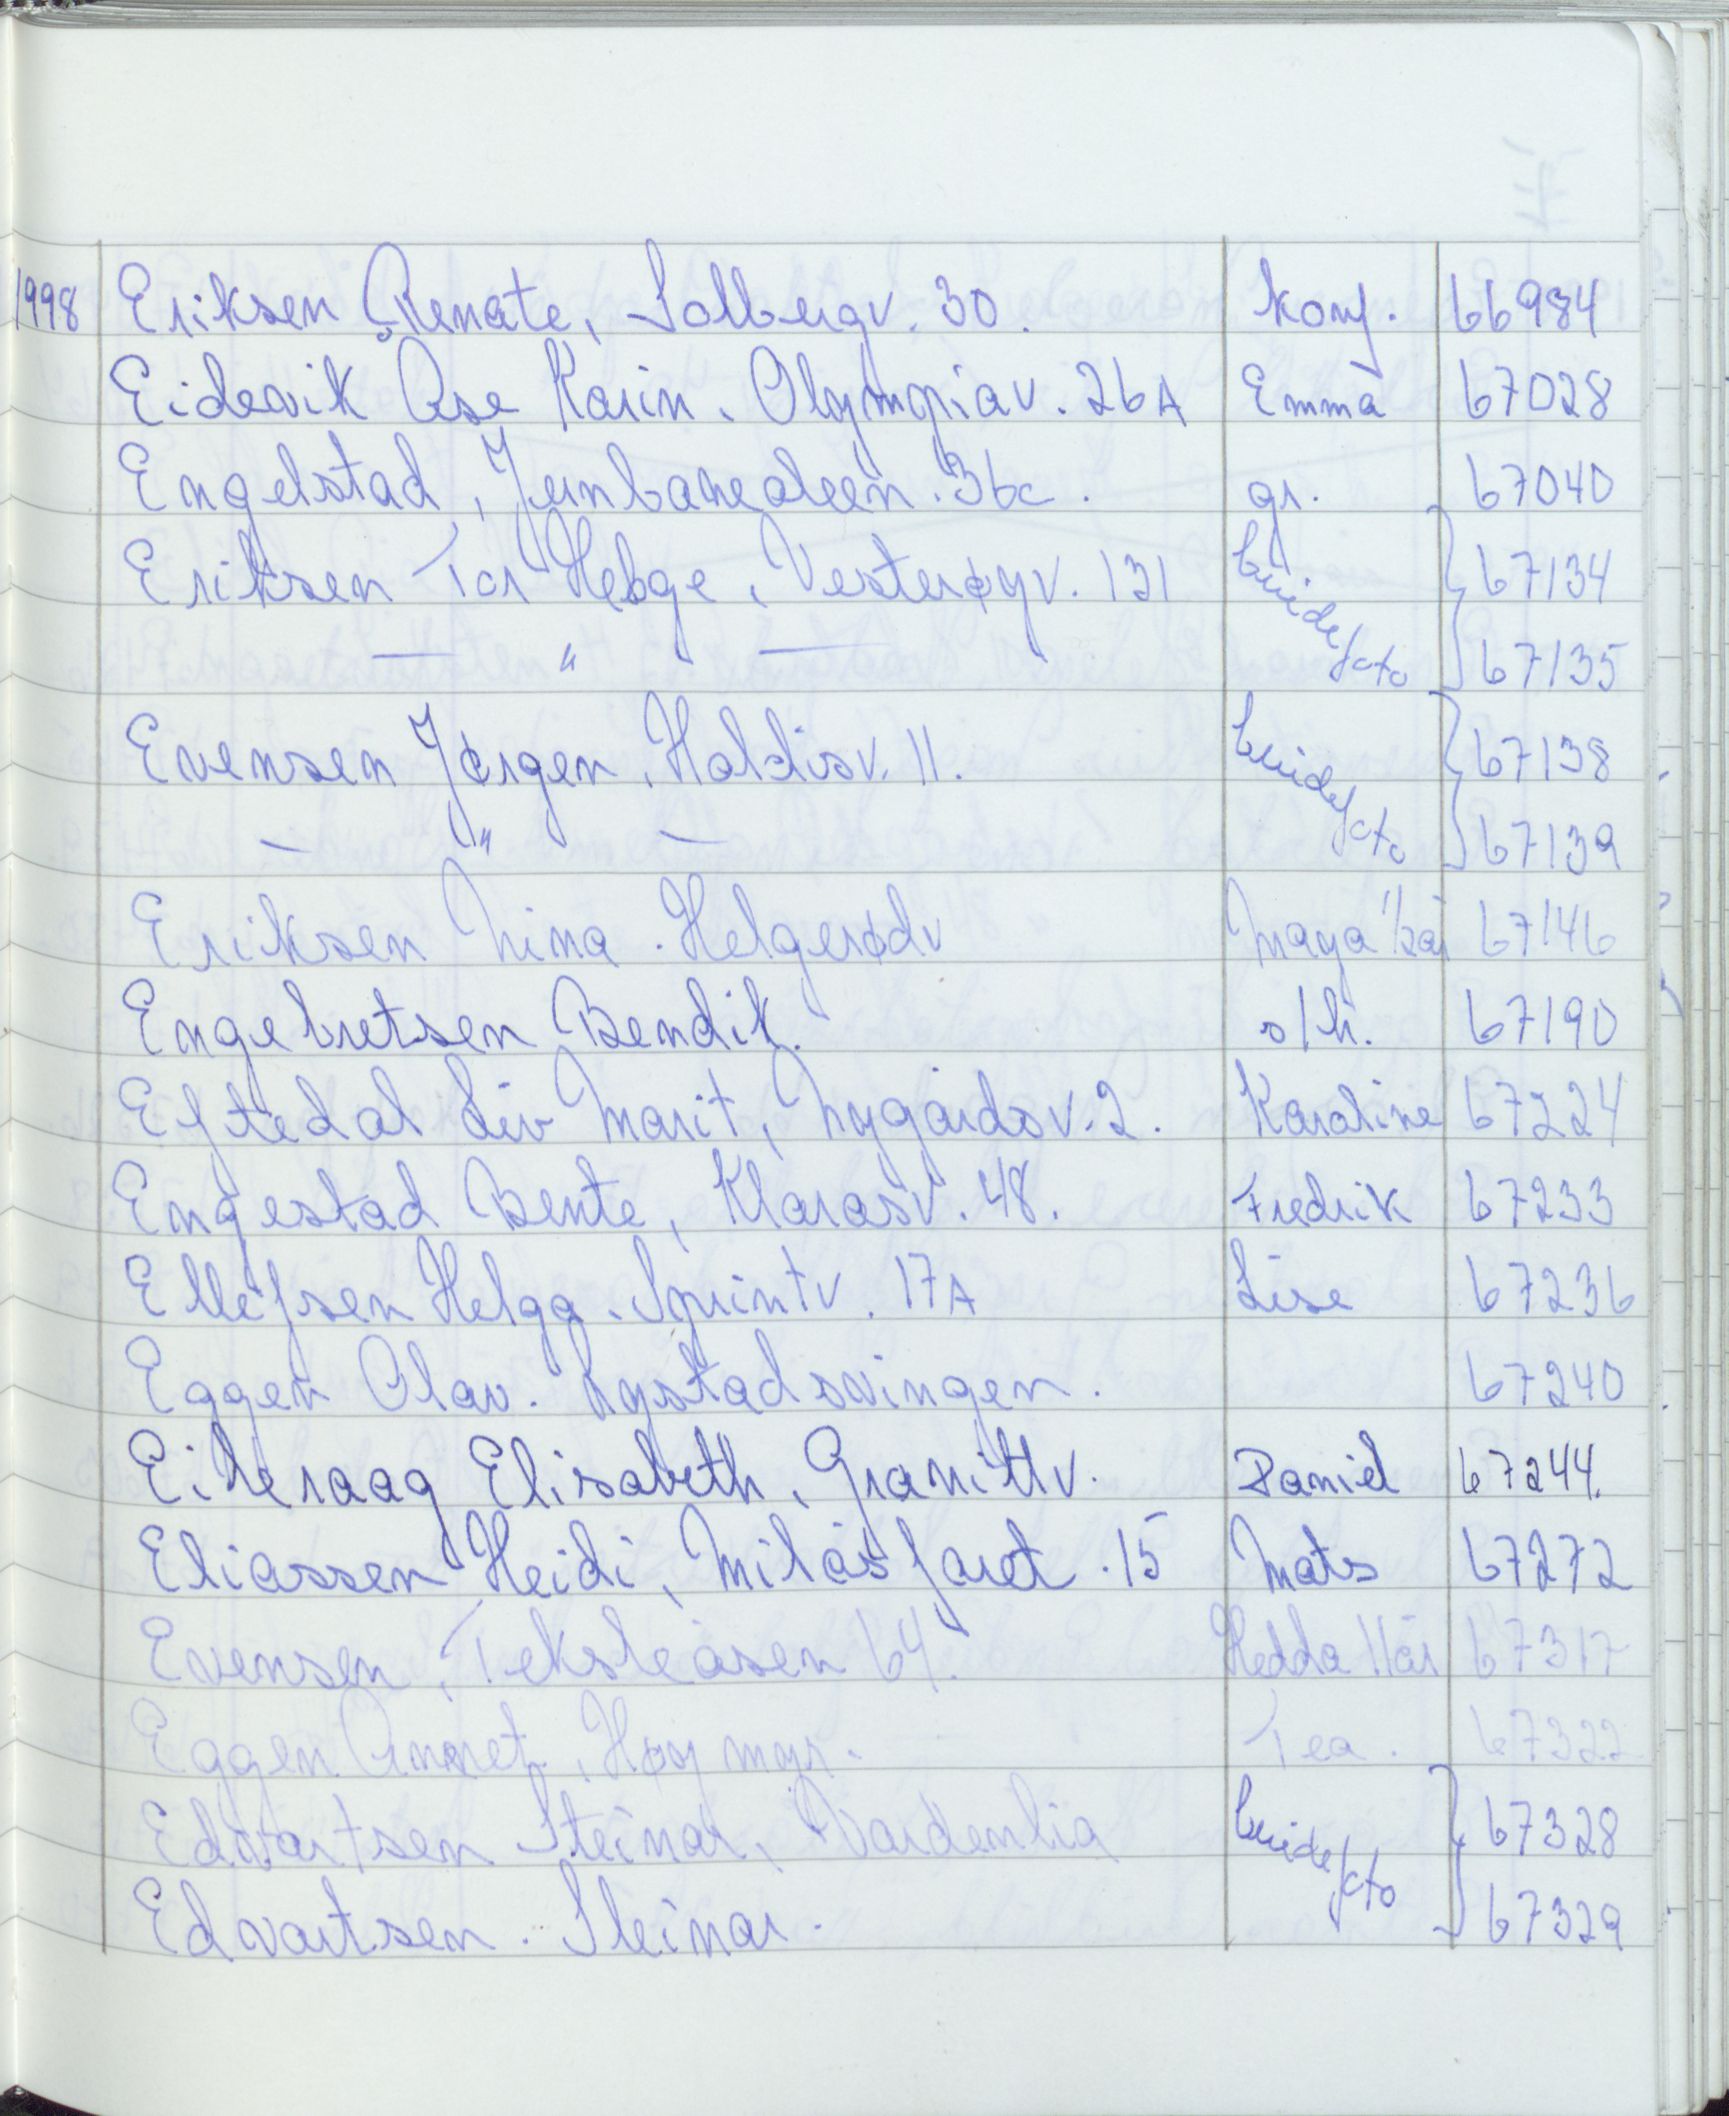 1998 Eriksen Renate, Solbergv. 30. konf. 66984
Eidevik Åse Karin. Olympiav. 26A Emma 67028
Engelstad, Jernbanealeen. 36c. gr. 67040
Eriksen Tor Helge, Vesterøyv. 131 brudefoto 67134
— " — 67135
Evensen Jørgen, Haldisv. 11. brudefoto 67138
— " — 67139
Eriksen Nina. Helgerødv Maya 1/2 år 67146
Engebretsen Bendik. s/h. 67190
Eftedal Liv Marit, Nygårdsv. 2. Karoline 67224
Engestad Bente, Klarasv. 48. Fredrik 67233
Ellefsen Helga. Sprintv. 17A Lise 67236
Eggen Olav. Nystadsvingen. 67240
Eikeraag Elisabeth, Granittv. Daniel 67244.
Eliassen Heidi, Milåsfaret. 15 Mats 67272
Evensen, Teksleåsen 64. Hedda 1 år 67317
Eggen Anneet, Høymyr. Tea. 67322
Edvartsen Steinar, Vardenlia brudefoto 67328
Edvartsen. Steinar. 67329